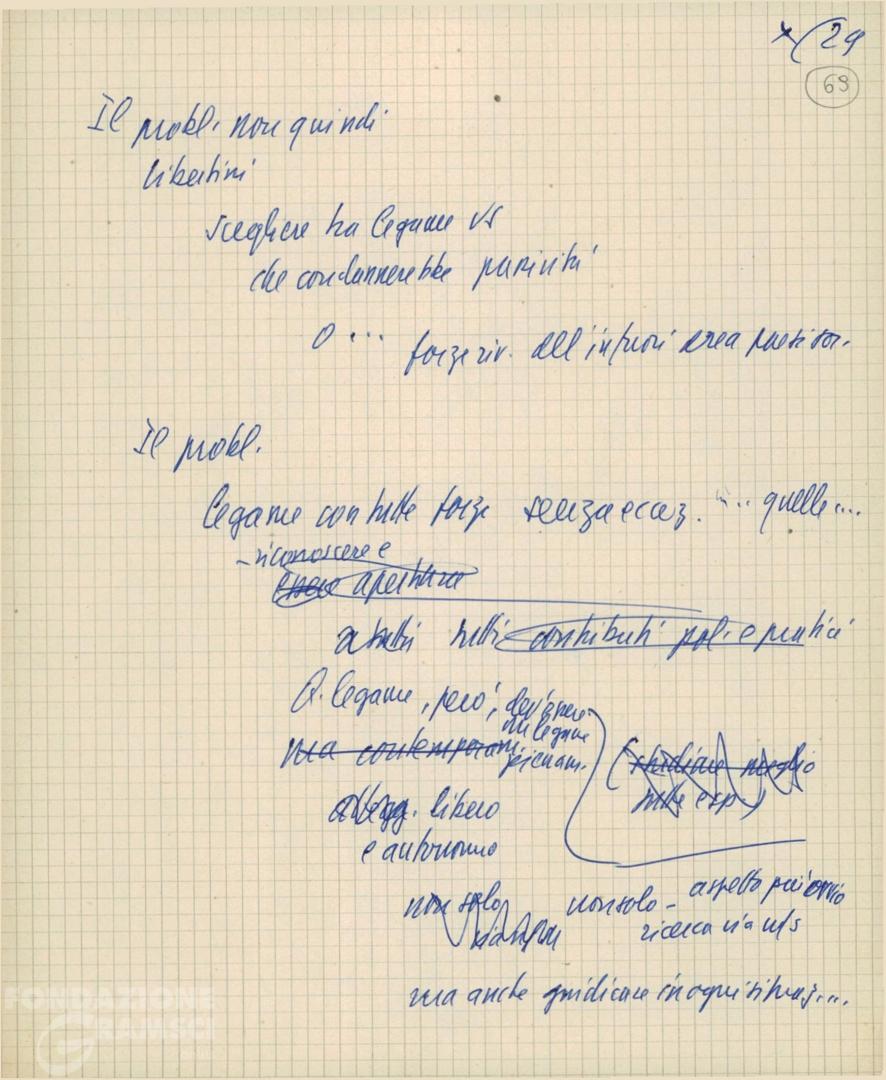 x/29
69
Il probl. non quindi
libertini
scegliere tra legame US
che condannerebbe passività
o ... forze riv. all'infuori area paesi soc.
Il probl.
legame con tutte forze senza eccez. ... quelle ...
- riconoscere e
apertura
a tutti contributi pol. e pratici
Q. legame, però, dev'essere
un legame
pienam.
ma contemporan.
(studiare meglio
tutte esp.)
atteg. libero
e autonomo
non solo
non solo - aspetto più ovvio
ricerca via ns
ma anche giudicare in ogni situaz....
FONDAZIONE
GRAMSCI